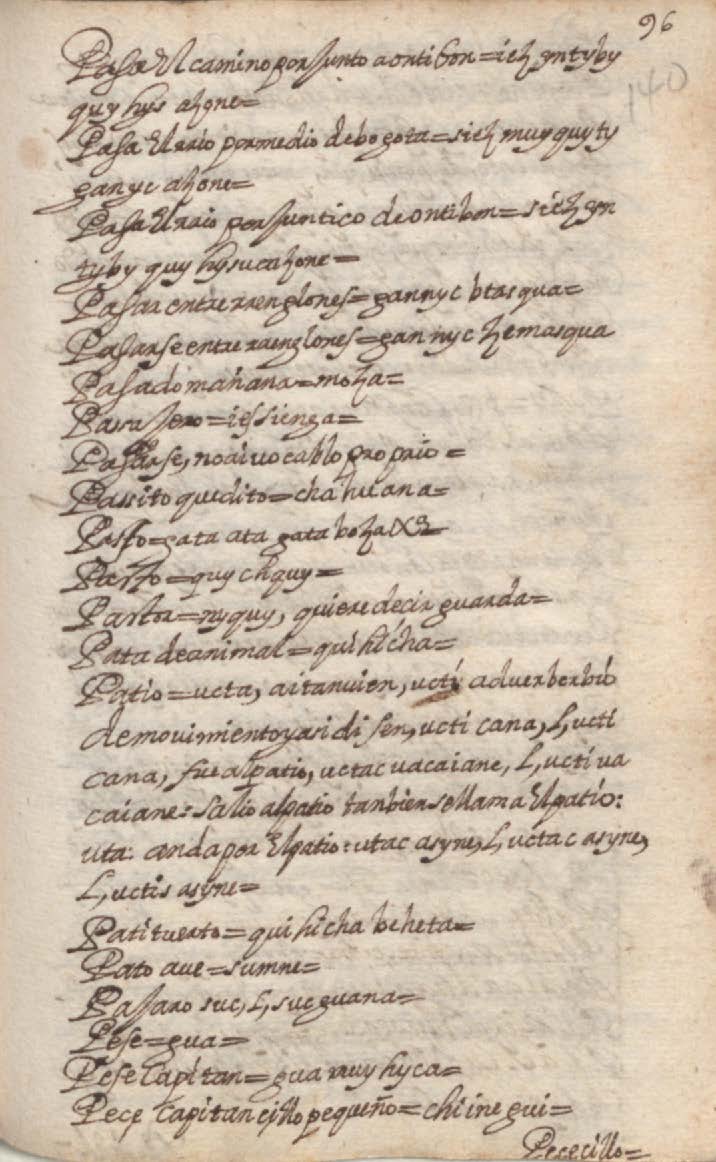 96
140
Pasa El camino por junto a ontibon = ieɀ yntyby
quy hys aɀone =
Pasa El rio por medio de bogota = sieɀ muyquyty
ganyc aɀone =
Pasa El rio por juntico de ontibon = sieɀ yn
tyby quy hysuc aɀone =
Pasar entre rrenglones = gannyc btasqua =
Pasarse entre rrenglones = gannyc ɀemasqua
Pasado mañana = moɀa =
Pasajero = iessienga =
Pasearse, no ai vocablo proprio =
Passito quedito = chahuana =
Pasto = gata ata gata boɀa
Pasto = quychquy =
Pasta = nyquy, quiere decir guarda =
Pata de animal = quihicha =
Patio = ucta, ai tanvien, ucti aduerberbio
de movimiento y asi disen, ucti cana, l, ucti
cana, fue al patio, uctac uacaiane, l, ucti ua
caiane: salio al patio tanbien se llama El patio:
uta: anda por El patio: utac asyne, l, uctac asyne,
l, uctis asyne =
Patituerto = quihicha beheta =
Pato ave = sumne =
Pajaro suc, l, sucguana =
Pese = gua =
Pese Capitan = gua muyhyca =
Peçe Capitancillo pequeño = chiinegui =
Pececillo =